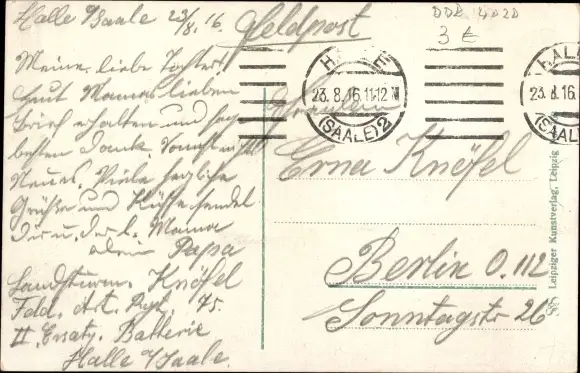 Halle a/Saale 23/8.16.
Feldpost
DDR 4020
3 €
Meine liebe Tochter!
Heut Mamas lieben
Brief erhalten und sag
besten Dank. Sonst nichts
Neues. Viele herzliche
Grüße und Küsse sendet
Dir u. der l. Mama
Papa
Landsturm. Knöfel
Feld. Art. Regt. 75.
II. Ersatz. Batterie
Halle a/Saale.
HALLE
23.8.16.11-12 V
(SAALE) 2
HALLE
23.8.16.
(SAALE)
Fräulein
Erna Knöfel
Berlin O. 112
Sonntagstr 26
Leipziger Kunstverlag, Leipzig